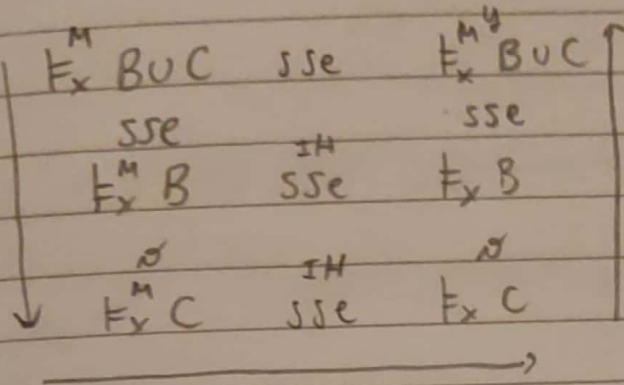 ⊨ₓᴹ B ∪ C sse ⊨ₓᴹʸ B ∪ C
sse sse
⊨ₓᴹ B IH sse ⊨ₓ B
o o
⊨ₓᴹ C IH sse ⊨ₓ C